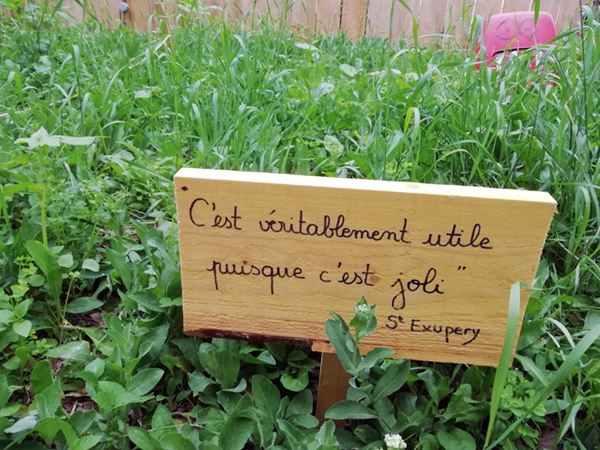 "C'est véritablement utile
puisque c'est joli"
St Exupery